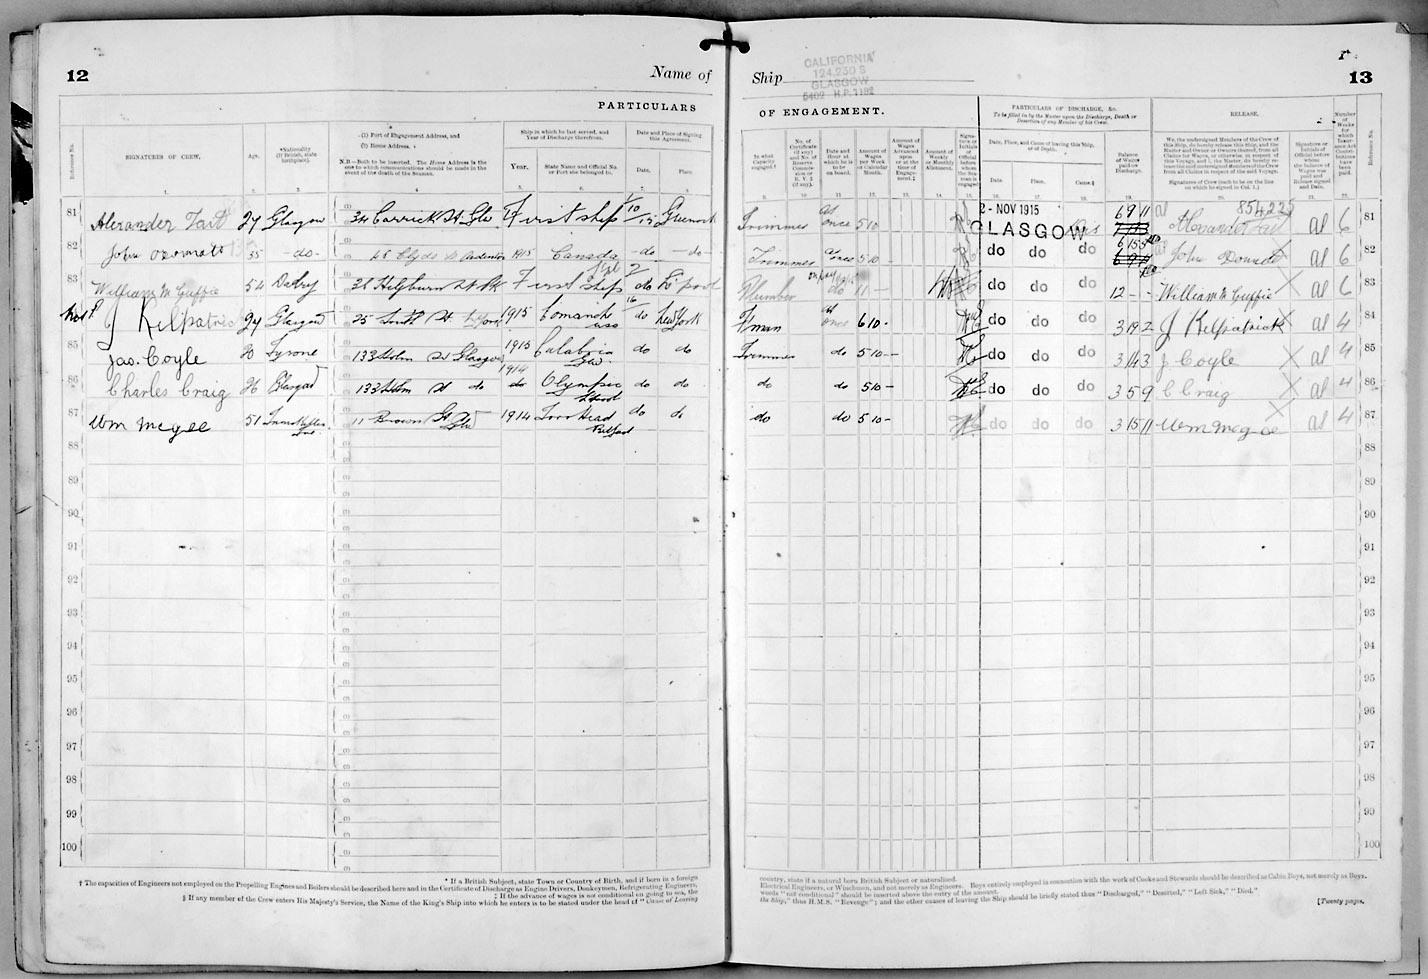 12
Name of
PARTICULARS
Reference No.
SIGNATURES OF CREW.
Age.
*Nationality (If British, state birthplace).
(1) Port of Engagement Address, and
(2) Home Address.
N.B.—Both to be inserted. The Home Address is the one to which communications should be made in the event of the death of the Seaman.
Ship in which he last served, and Year of Discharge therefrom.
Year.
State Name and Official No. or Port she belonged to.
Date and Place of Signing this Agreement.
Date.
Place.
1. 2. 3. 4. 5. 6. 7. 8.
81 Alexander Tait 27 Glasgow 34 Carrick St. Glw First ship 1/10 15 Greenock
82 John 35 - do - 48 Clyde St Anderston 1915 Canada - do - do
83 William McGuffie 54 Dalry First ship 2 do L'pool
84 J Kilpatrick 24 Glasgow 25 South St. New York 1915 Comanche USA 16 do New York
85 Jas. Coyle Tyrone 133 Holm St Glasgow 1915 Calabria Glw do do
86 Charles Craig 26 Glasgow 133 Holm St do 1914 do Olympic L'pool do do
87 Wm McGee 51 11 Brown St Glw 1914 Torr Head Belfast do do
88
89
90
91
92
93
94
95
96
97
98
99
100
* If a British Subject, state Town or Country of Birth, and if born in a foreign
† The capacities of Engineers not employed on the Propelling Engines and Boilers should be described here and in the Certificate of Discharge as Engine Drivers, Donkeymen, Refrigerating Engineers,
‡ If the advance of wages is not conditional on going to sea, the
§ If any member of the Crew enters His Majesty's Service, the Name of the King's Ship into which he enters is to be stated under the head of "Cause of Leaving
Ship
CALIFORNIA
124,230 S
GLASGOW
5402 H.P. 1182
13
OF ENGAGEMENT.
In what Capacity engaged.†
No. of Certificate (if any) and No. of Reserve Commission or R.V.2 (if any).
Date and Hour at which he is to be on board.
Amount of Wages per Week or Calendar Month.
Amount of Wages Advanced upon or at the time of Engagement.‡
Amount of Weekly or Monthly Allotment.
Signature or Initials of Official before whom the Seaman is engaged
PARTICULARS OF DISCHARGE, &c.
To be filled in by the Master upon the Discharge, Death or Desertion of any Member of his Crew.
Date, Place, and Cause of leaving this Ship, or of Death.
Date.
Place.
Cause.§
Balance of Wages paid on Discharge.
RELEASE.
We, the undersigned Members of the Crew of this Ship, do hereby release this Ship, and the Master and Owner or Owners thereof, from all Claims for Wages, or otherwise, in respect of this Voyage, and I, the Master, do hereby release the undersigned Members of the Crew from all Claims in respect of the said Voyage.
Signatures of Crew (each to be on the line on which he signed in Col. 1.)
Signature or Initials of Official before whom the balance of Wages was paid and Release signed and Date.
Number of Weeks for which Insurance Act Contributions have been paid.
Reference No.
9. 10. 11. 12. 13. 14. 15. 16. 17. 18. 19. 20. 21. 22.
2- NOV 1915
GLASGOW
854225
81 Trimmer at once 5 10 6 9 11 Alexander Tait al 6
82 Trimmer at once 5 10 - do do do John al 6
83 Plumber do 11 - do do do 12 - - William McGuffie al 6
84 F'man at once 6 10 - do do do 3 19 2 J Kilpatrick al 4
85 Trimmer do 5 10 - do do do 3 14 3 J Coyle al 4
86 do do 5 10 - do do do 3 5 9 C Craig al 4
87 do do 5 10 - do do do 3 15 11 Wm McGee al 4
88
89
90
91
92
93
94
95
96
97
98
99
100
country, state if a natural born British Subject or naturalised.
Electrical Engineers, or Winchmen, and not merely as Engineers. Boys entirely employed in connection with the work of Cooks and Stewards should be described as Cabin Boys, not merely as Boys.
words "not conditional" should be inserted above the entry of the amount.
the Ship," thus H.M.S. "Revenge"; and the other causes of leaving the Ship should be briefly stated thus "Discharged," "Deserted," "Left Sick," "Died."
[Twenty pages.